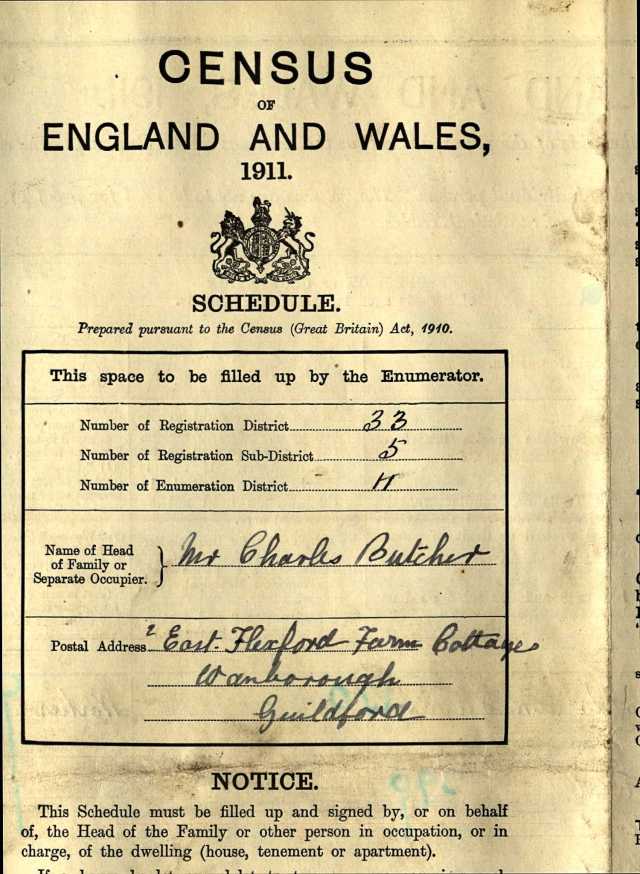 CENSUS
OF
ENGLAND AND WALES,
1911.
SCHEDULE.
Prepared pursuant to the Census (Great Britain) Act, 1910.
This space to be filled up by the Enumerator.
Number of Registration District 33
Number of Registration Sub-District 5
Number of Enumeration District
Name of Head
of Family or
Separate Occupier.
Mr Charles Butcher
Postal Address 2 East Flexford Farm Cottages
Wanborough
Guildford
NOTICE.
This Schedule must be filled up and signed by, or on behalf
of, the Head of the Family or other person in occupation, or in
charge, of the dwelling (house, tenement or apartment).